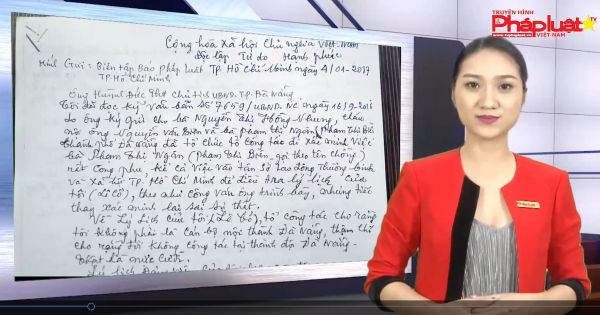 TRUYỀN HÌNH
Phápluật TV
VIỆT NAM
Cộng hòa Xã hội Chủ nghĩa Việt Nam
Độc lập Tự do Hạnh phúc
Kính Gửi: Biên tập Báo Pháp luật TP. Hồ Chí Minh ngày 4/01-2017
TP Hồ Chí Minh
Ông Huỳnh Đức Thơ Chủ tịch UBND TP. Đà Nẵng
Tôi đã đọc kỹ Văn bản số 7659/UBND NC ngày 16/9-2015
do ông ký gửi cho bà Nguyễn Thị Hồng Nhung, cháu
nội ông Nguyễn Văn Biên và bà Phạm Thị Ngân (Phạm Thị Biên)
thành phố Đà Nẵng đã tổ chức tổ công tác đi xác minh Việc
bà Phạm Thị Ngân (Phạm Thị Biên gọi theo tên chồng)
rất công phu. Kể cả Việc vào tận Sở Lao động Thương binh
và Xã hội TP. Hồ Chí Minh để điều tra lý lịch của
tôi (Lê Cổ), theo như công văn ông trình bày, nhưng tiếc
thay xác minh lại sai sự thật.
Về Lý lịch của tôi (Lê Cổ), tổ công tác cho rằng
tôi không phải là cán bộ nội thành Đà Nẵng, thậm chí
cho rằng tôi không công tác tại thành đội Đà Nẵng.
Thật là nực cười.